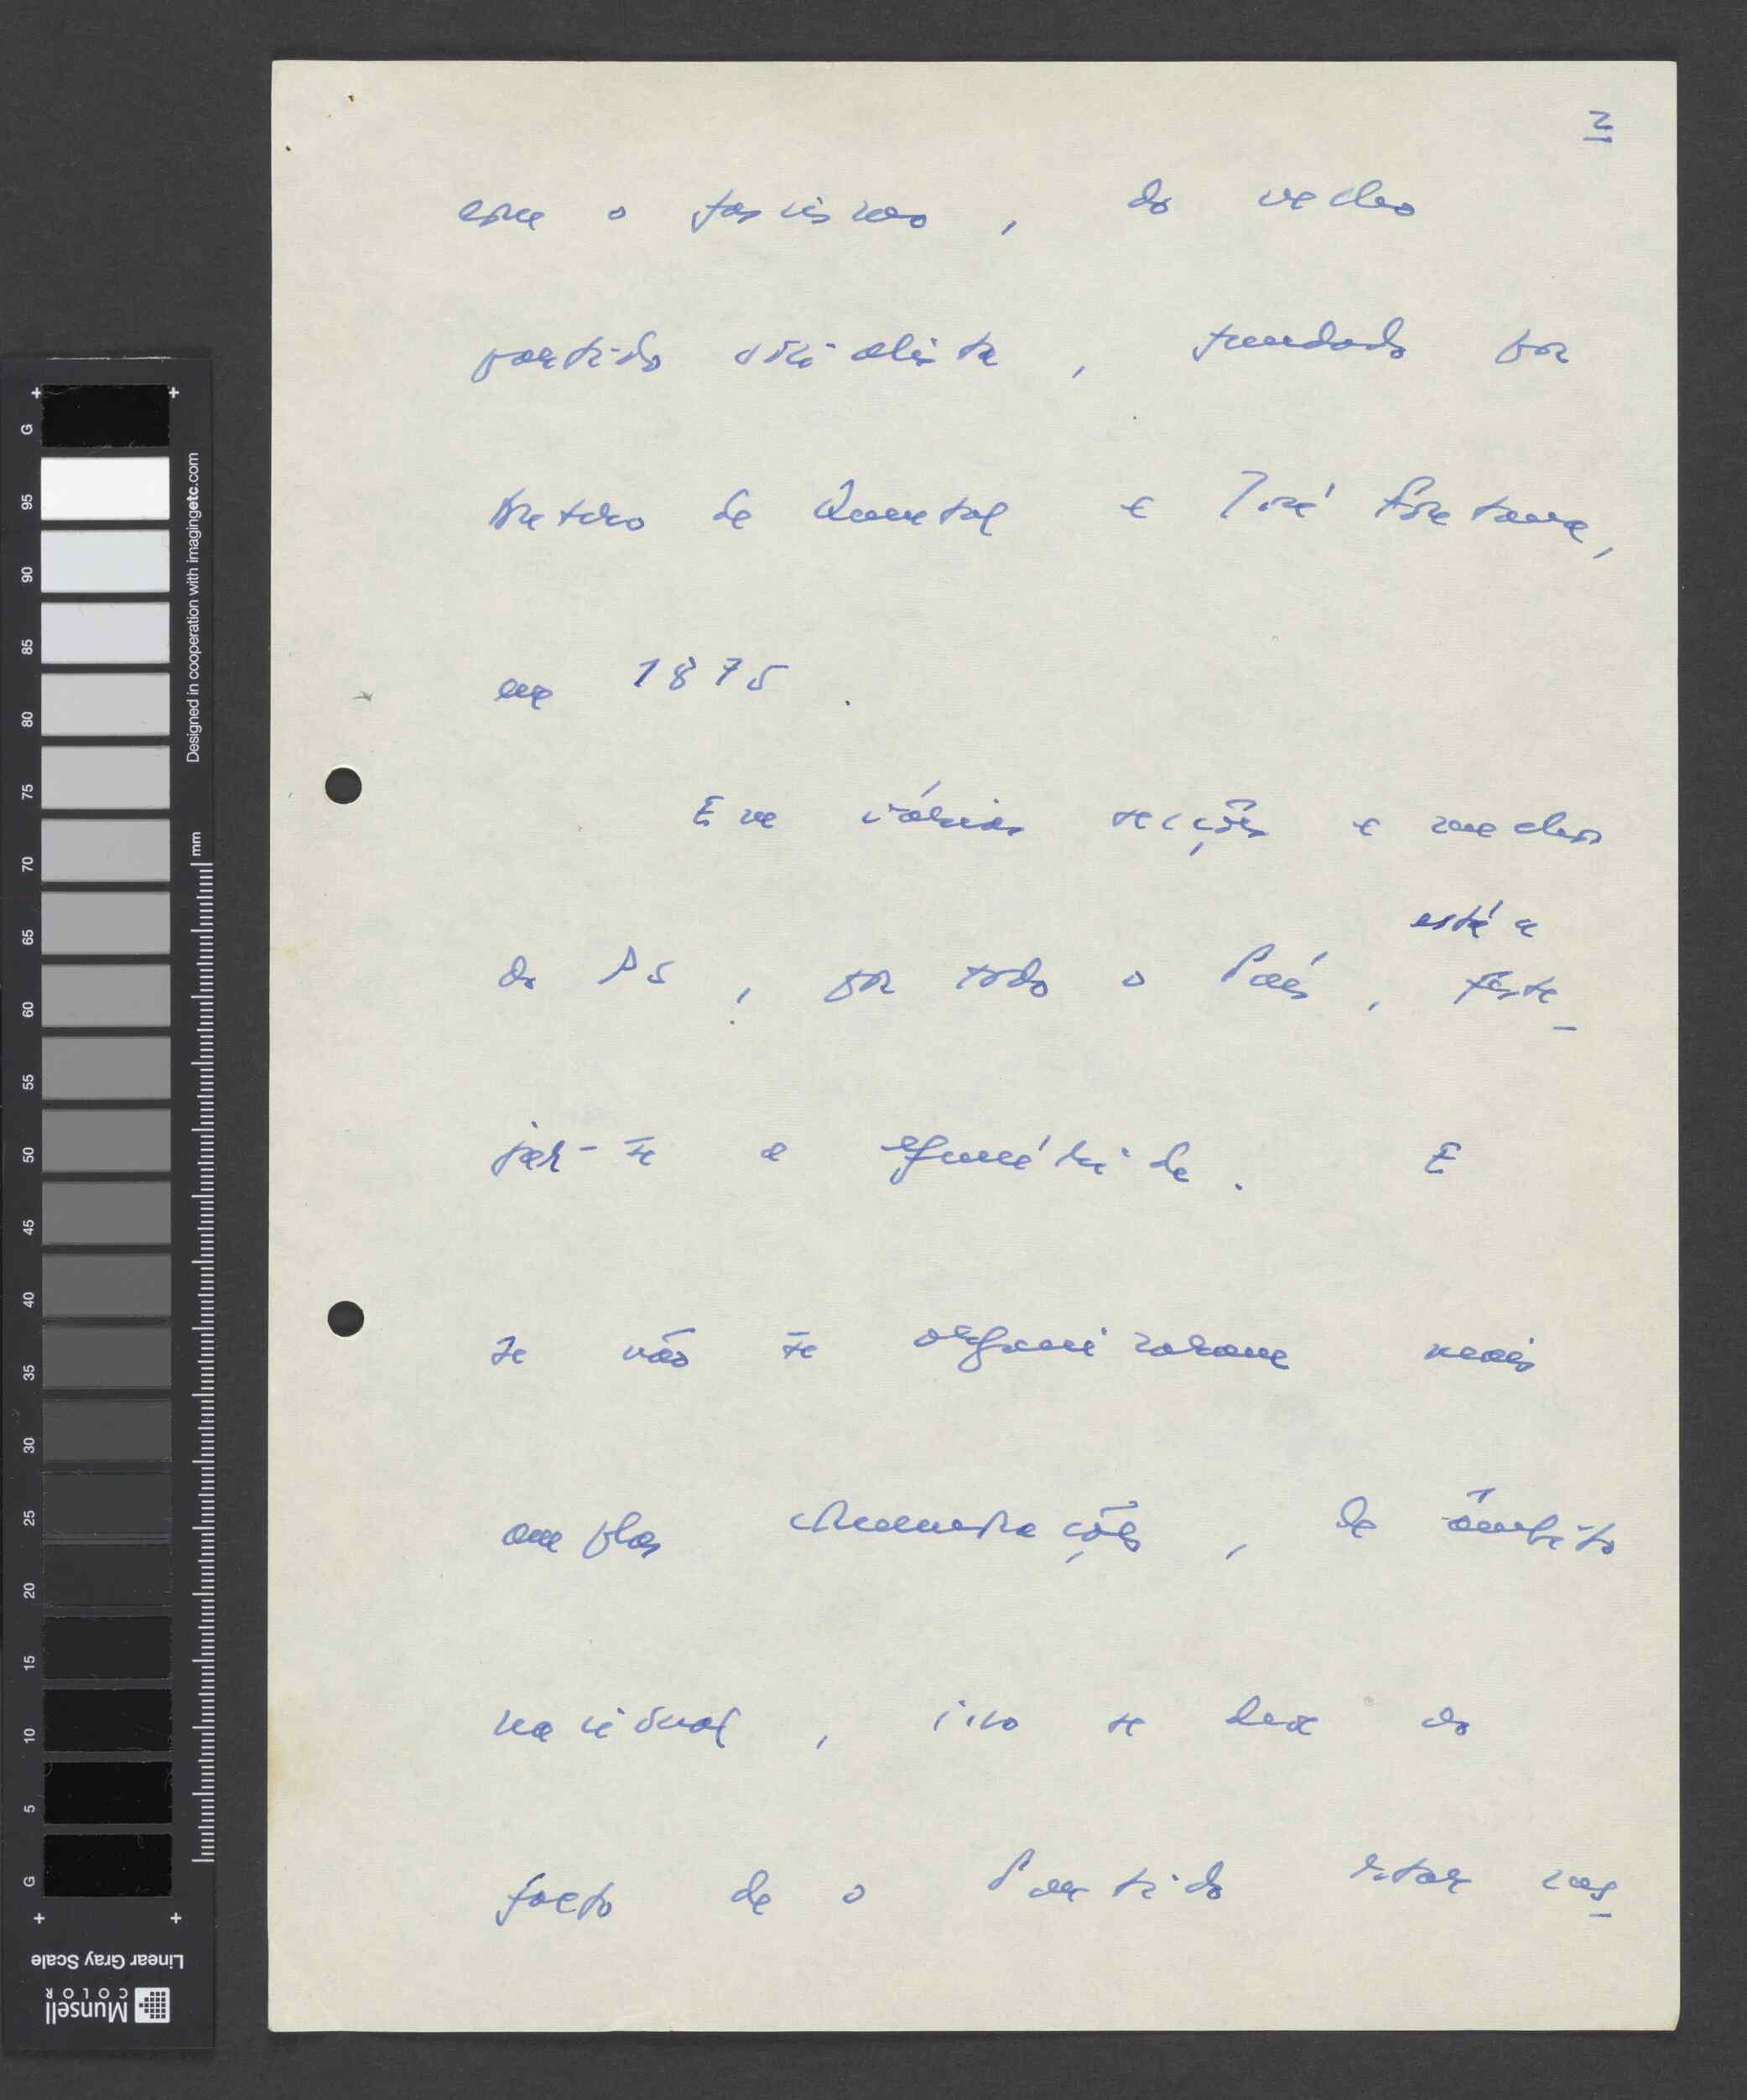 2
com o fascismo, do velho
partido socialista, fundado por
Antero de Quental e José Fontana,
em 1875.
Em várias secções e núcleos
do PS, por todo o País, está a feste-
jar-se a efeméride. E
se não se organizaram mais
amplas comemorações, de âmbito
nacional, isso se deve ao
facto de o Partido estar
G
95
90
85
80
75
70
65
60
55
50
45
40
35
30
25
20
15
10
5
G
mm
Designed in cooperation with imagingetc.com
Linear Gray Scale
Munsell
COLOR